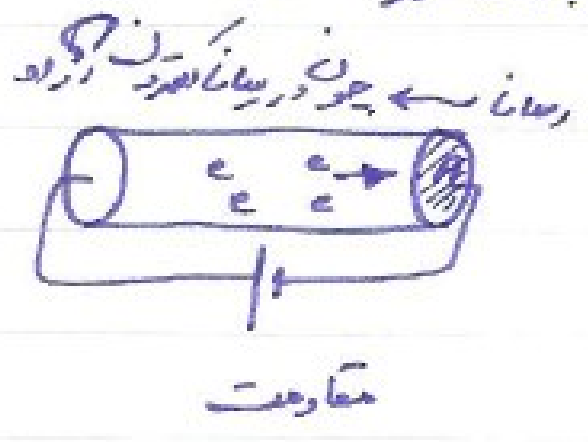 رسانا ← چون در رسانا الکترون آزاد
e e
e e
مقاومت